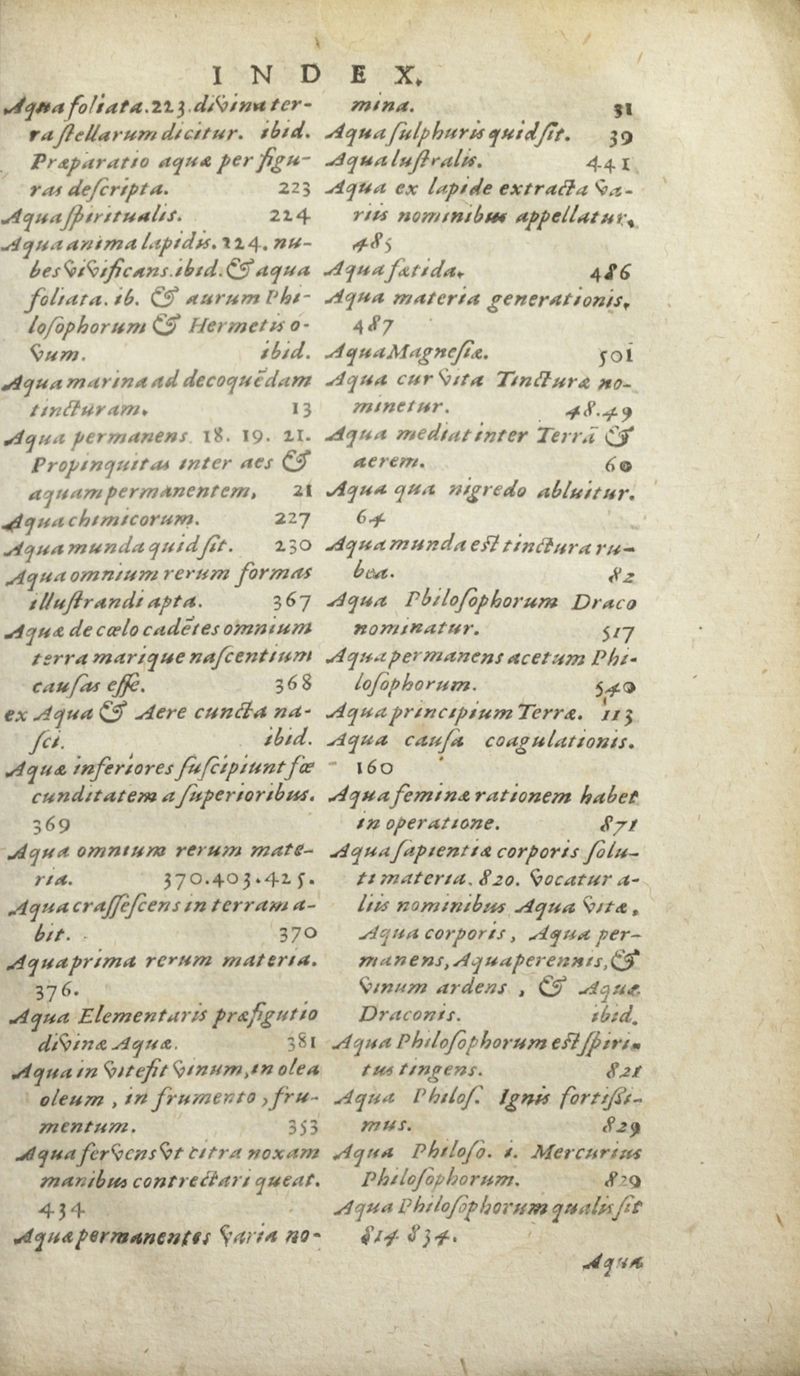 INDEX.
Aqua foliata. 223. divina ter-
ra ſtellarum dicitur. ibid.
Præparatio aquæ per figu-
ras deſcripta. 223
Aqua ſpiritualis. 224
Aqua anima lapidis. 224. nu-
bes vivificans. ibid. & aqua
foliata. ib. & aurum Phi-
loſophorum & Hermetis o-
vum. ibid.
Aqua marina ad decoquēdam
tincturam. 13
Aqua permanens 18. 19. 21.
Propinquitas inter aes &
aquam permanentem, 21
Aqua chimicorum. 227
Aqua munda quid ſit. 230
Aqua omnium rerum formas
illuſtrandi apta. 367
Aquæ de cœlo cadētes omnium
terra marique naſcentium
cauſas eſſe. 368
ex Aqua & Aere cuncta na-
ſci. ibid.
Aquæ inferiores ſuſcipiunt fœ
cunditatem a ſuperioribus.
369
Aqua omnium rerum mate-
ria. 370.403.425.
Aqua craſſeſcens in terram a-
bit. 370
Aqua prima rerum materia.
376.
Aqua Elementaris præfigutio
divinæ Aquæ. 381
Aqua in vite fit vinum, in olea
oleum, in frumento, fru-
mentum. 353
Aqua fervens vt citra noxam
manibus contrectari queat.
434
Aquæ permanentes varia no-
mina. 31
Aqua ſulphuris quid ſit. 39
Aqua luſtralis. 441
Aqua ex lapide extracta va-
riis nominibus appellatur.
485
Aqua fætida. 486
Aqua materia generationis.
487
Aqua Magneſiæ. 501
Aqua cur vita Tincturæ no-
minetur. 48.49
Aqua mediat inter Terrā &
aerem. 60
Aqua qua nigredo abluitur.
64
Aqua munda eſt tinctura ru-
bea. 82
Aqua Philoſophorum Draco
nominatur. 517
Aqua permanens acetum Phi-
loſophorum. 540
Aqua principium Terræ. 113
Aqua cauſa coagulationis.
160
Aqua feminæ rationem habet
in operatione. 871
Aqua ſapientiæ corporis ſolu-
ti materia. 820. vocatur a-
liis nominibus Aqua vitæ,
Aqua corporis, Aqua per-
manens, Aqua perennis, &
vinum ardens, & Aqua
Draconis. ibid.
Aqua Philoſophorum eſt ſpiri-
tus tingens. 821
Aqua Philoſ. Ignis fortiſſi-
mus. 829
Aqua Philoſo. i. Mercurius
Philoſophorum. 829
Aqua Philoſophorum qualis ſit
814 834.
Aqua